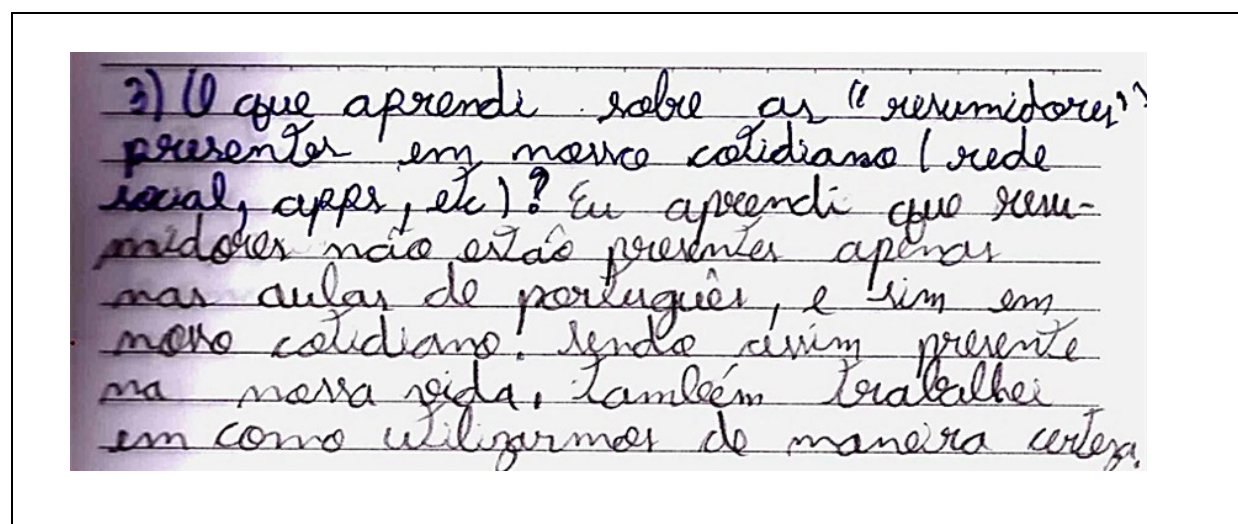 3) O que aprendi sobre as "resumidores"
presentes em nosso cotidiano (rede
social, apps, etc)? Eu aprendi que resu-
midores não estão presentes apenas
nas aulas de português, e sim em
nosso cotidiano. Sendo assim presente
na nossa vida, também trabalhei
em como utilizarmos de maneira certeza.